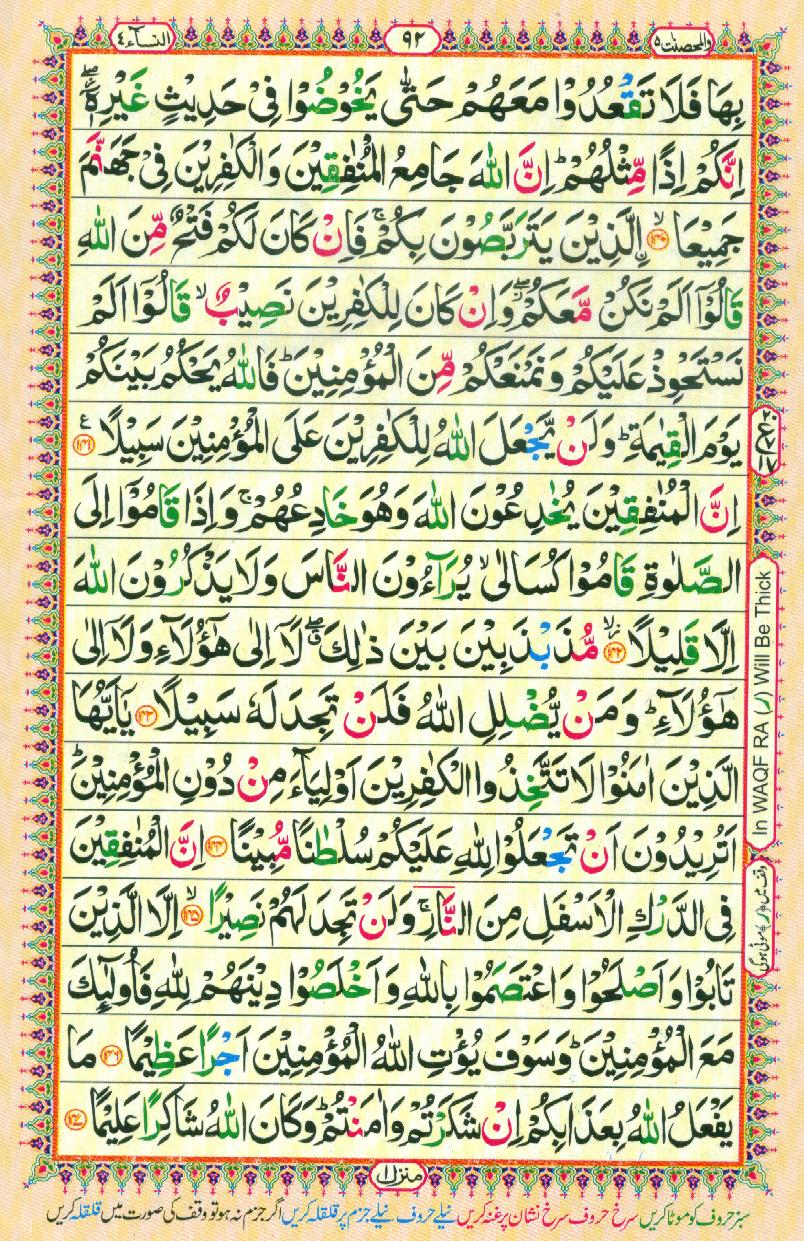 والمحصنت ٥
٩٢
النسآء ٤
بِهَا فَلَا تَقْعُدُوْا مَعَهُمْ حَتّٰى يَخُوْضُوْا فِيْ حَدِيْثٍ غَيْرِهٖٓ ۖ
اِنَّكُمْ اِذًا مِّثْلُهُمْ ؕ اِنَّ اللّٰهَ جَامِعُ الْمُنٰفِقِيْنَ وَالْكٰفِرِيْنَ فِيْ جَهَنَّمَ
جَمِيْعًا ۙ﴿۱۴۰﴾ اِۨلَّذِيْنَ يَتَرَبَّصُوْنَ بِكُمْ ۚ فَاِنْ كَانَ لَكُمْ فَتْحٌ مِّنَ اللّٰهِ
قَالُوْٓا اَلَمْ نَكُنْ مَّعَكُمْ ۖ وَاِنْ كَانَ لِلْكٰفِرِيْنَ نَصِيْبٌ ۙ قَالُوْٓا اَلَمْ
نَسْتَحْوِذْ عَلَيْكُمْ وَنَمْنَعْكُمْ مِّنَ الْمُؤْمِنِيْنَ ؕ فَاللّٰهُ يَحْكُمُ بَيْنَكُمْ
يَوْمَ الْقِيٰمَةِ ؕ وَلَنْ يَّجْعَلَ اللّٰهُ لِلْكٰفِرِيْنَ عَلَى الْمُؤْمِنِيْنَ سَبِيْلًا ﴿۱۴۱﴾ ع
اِنَّ الْمُنٰفِقِيْنَ يُخٰدِعُوْنَ اللّٰهَ وَهُوَ خَادِعُهُمْ ۚ وَاِذَا قَامُوْٓا اِلَى
الصَّلٰوةِ قَامُوْا كُسَالٰى ۙ يُرَآءُوْنَ النَّاسَ وَلَا يَذْكُرُوْنَ اللّٰهَ
اِلَّا قَلِيْلًا ﴿۱۴۲﴾ مُّذَبْذَبِيْنَ بَيْنَ ذٰلِكَ ۖ لَآ اِلٰى هٰٓؤُلَآءِ وَلَآ اِلٰى
هٰٓؤُلَآءِ ؕ وَمَنْ يُّضْلِلِ اللّٰهُ فَلَنْ تَجِدَ لَهٗ سَبِيْلًا ﴿۱۴۳﴾ يٰٓاَيُّهَا
الَّذِيْنَ اٰمَنُوْا لَا تَتَّخِذُوا الْكٰفِرِيْنَ اَوْلِيَآءَ مِنْ دُوْنِ الْمُؤْمِنِيْنَ ؕ
اَتُرِيْدُوْنَ اَنْ تَجْعَلُوْا لِلّٰهِ عَلَيْكُمْ سُلْطٰنًا مُّبِيْنًا ﴿۱۴۴﴾ اِنَّ الْمُنٰفِقِيْنَ
فِى الدَّرْكِ الْاَسْفَلِ مِنَ النَّارِ ۚ وَلَنْ تَجِدَ لَهُمْ نَصِيْرًا ۙ﴿۱۴۵﴾ اِلَّا الَّذِيْنَ
تَابُوْا وَاَصْلَحُوْا وَاعْتَصَمُوْا بِاللّٰهِ وَاَخْلَصُوْا دِيْنَهُمْ لِلّٰهِ فَاُولٰٓئِكَ
مَعَ الْمُؤْمِنِيْنَ ؕ وَسَوْفَ يُؤْتِ اللّٰهُ الْمُؤْمِنِيْنَ اَجْرًا عَظِيْمًا ﴿۱۴۶﴾ مَا
يَفْعَلُ اللّٰهُ بِعَذَابِكُمْ اِنْ شَكَرْتُمْ وَاٰمَنْتُمْ ؕ وَكَانَ اللّٰهُ شَاكِرًا عَلِيْمًا ﴿۱۴۷﴾
In WAQF RA (ر) Will Be Thick
وقف میں ﴿ر﴾ موٹی ہوگی
منزل ١
سبز حروف کو موٹا کریں سرخ حروف سرخ نشان پر غنہ کریں نیلے حروف نیلے جزم پر قلقلہ کریں اگر جزم نہ ہو تو وقف کی صورت میں قلقلہ کریں